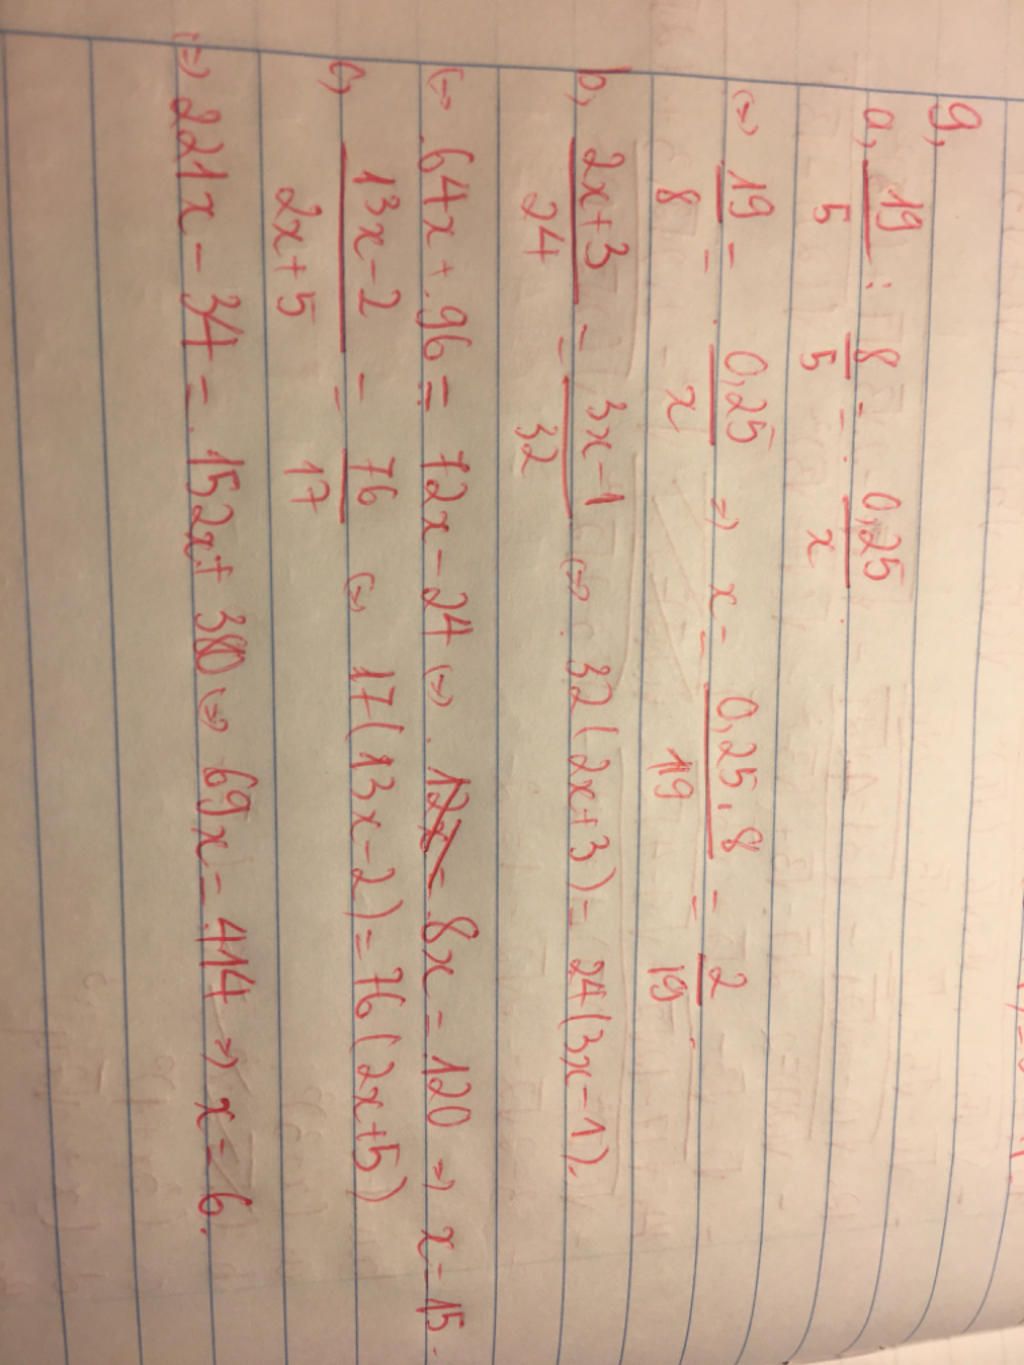 9,
a, 19/5 : 8/5 = 0,25/x
(=) 19/8 = 0,25/x => x = 0,25.8/19 = 2/19
b, 2x+3/24 = 3x-1/32 (=) 32(2x+3) = 24(3x-1).
(=) 64x + 96 = 72x - 24 (=) 8x = 120 => x = 15.
c, 13x-2/2x+5 = 76/17 (=) 17(13x-2) = 76(2x+5)
(=) 221x - 34 = 152x + 380 (=) 69x = 414 => x = 6.